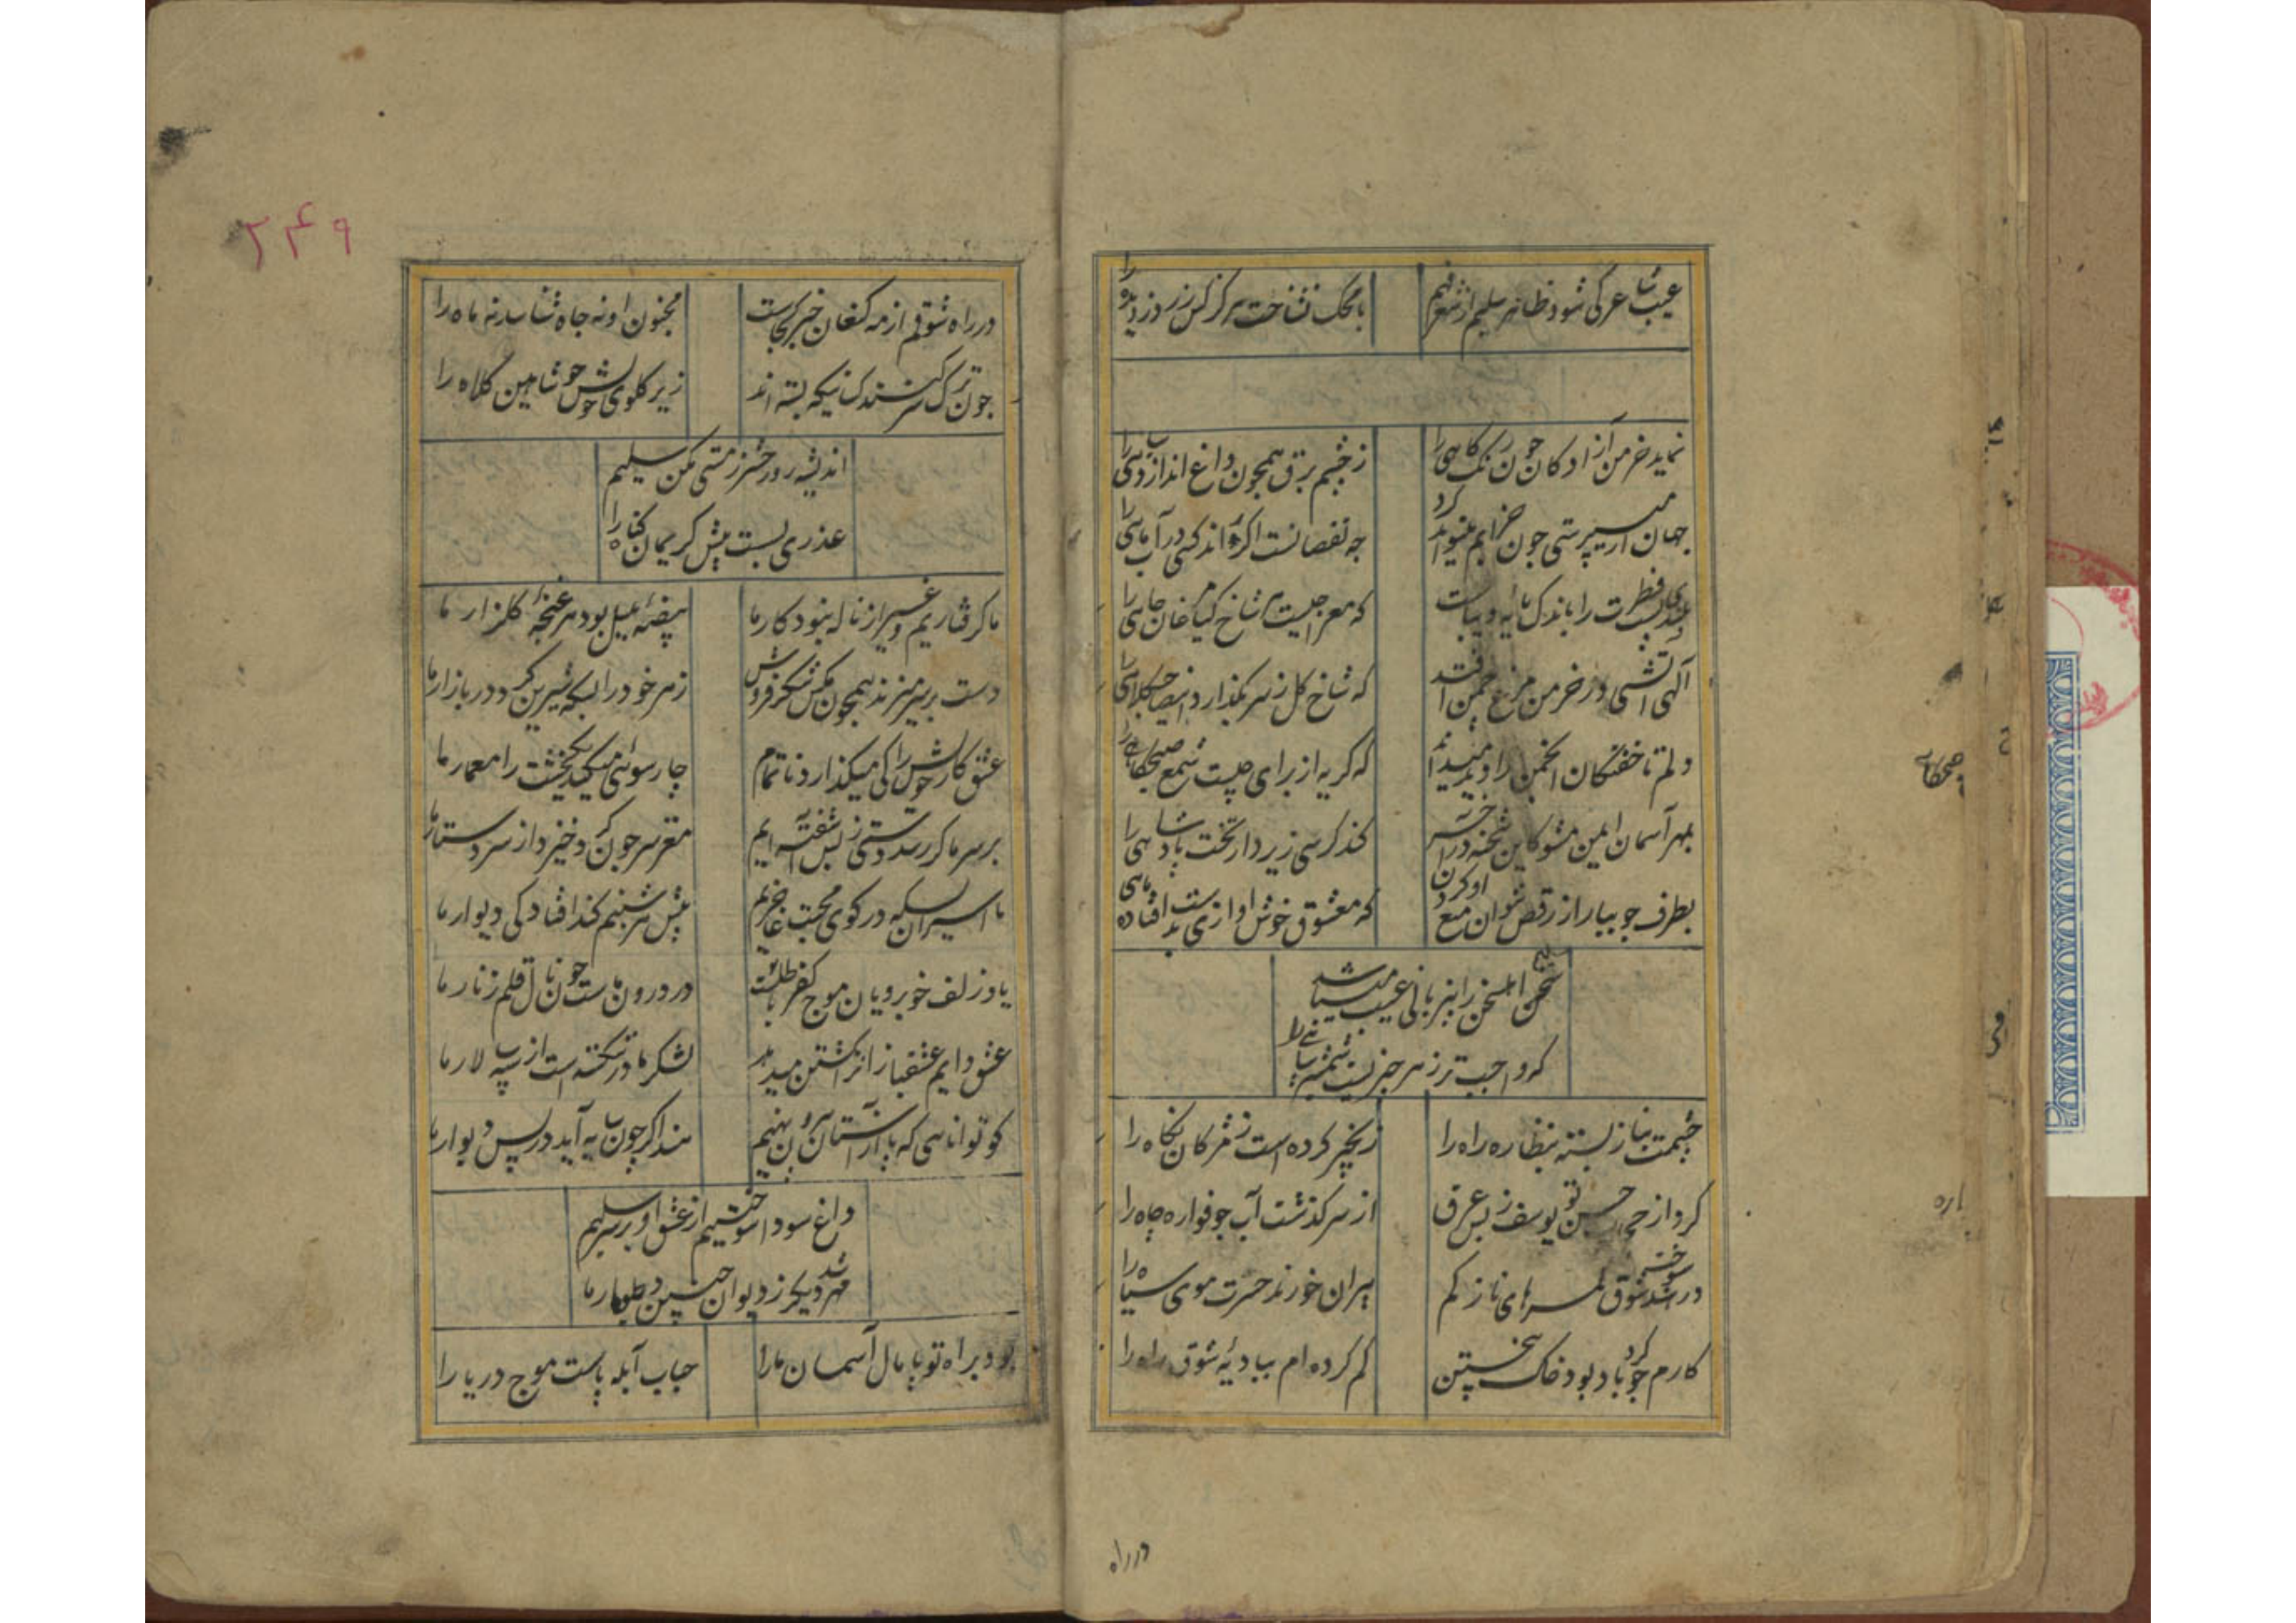 عیب شاعر کی شود ظاهر سلیم از شعر فهم
با محک نشناخت هرگز کس زر دزدیده را
نماید خرمن آزادکان چون رنک کاهی را
ز چشم برق همچون داغ اندازد سیاهی را
جهان از می پرستی چون خرابم میتواند کرد
چه نقصانست اکر ماند کسی در آب ماهی را
بلندی فطرت را باندک مایه
که معراجیست هر شاخ کیا مرغان چاهی را
الهی آتشی در خرمن مرغ چمن افتد
که شاخ کل ز سر نگذارد این صاحب کلاهی را
دلم تا خفتکان انجمن را دید میداند
که گریه از برای چیست شمع صبحکاهی را
بمهر آسمان ایمن مشو کاین شحنه در آخر
کند کرسی زیر دار تخت پادشاهی را
بطرف جویبار از رقص نتوان منع او کردن
که معشوق خوش اوازی بدست افتاده ماهی را
سخن اهل سخن را بی زبانی عیب میباشد
که واجب تر ز هر چیزیست شمشیر سپاهی را
چشمت بناز بسته بنظاره راه را
زنجیر کرده است ز مژکان نکاه را
کرد از حیای حسن تو یوسف ز بس عرق
از سر کذشت آب چو فواره چاه را
در آتشند سوخته شوق لمسهای ناز کم
پیران خورند حسرت موی سیاه را
کارم چو کرد باد بود خاک بیختن
کم کرده ام ببادیهٔ شوق راه را
در راه
۲۴۹
در راه شوقم از مه کنعان خبر کجاست
مجنون او نه جاه شناسد نه ماه را
چون ترک سر کنند کسانیکه بسته اند
زیر کلوی خویش چو شاهین کلاه را
اندیشه روز حشر ز مستی مکن سلیم
عذری بسست پیش کریمان کناه را
ما کرفتاریم و غیر از ناله نبود کار ما
بیضهٔ بلبل بود هر غنچهٔ کلزار ما
دست بر سر میزند همچون مکس شکر فروش
زهر خود را بسکه شیرین کرد در بازار ما
عشق کار خویش را کی میکذارد ناتمام
جا رسوائی میکند یک خشت را معمار ما
بر سر ما کر رسد دستی ز بس آشفته ایم
مغز سر چون کرد خیزد از سر دستار ما
ما اسیران بسکه در کوی محبت عاجزیم
پیش هر شبنم کند افتادکی دیوار ما
یاد زلف خوبرویان موج کفر باطنست
در درون ماست چون نال قلم زنار ما
عشق دایم عشقبازانرا بکشتن میدهد
لشکر ما در شکسته است از سپه سالار ما
کو توانایی که پا از آستان بیرون نهیم
هند اکر چون سایه آید در پس دیوار ما
داغ سودا سوختیم از عشق او بر سر سلیم
مهر دیکر زد بدیوان جنون طومار ما
بود براه تو پامال آسمان ما را
حباب آبله پاست موج دریا را
صبحکاهی